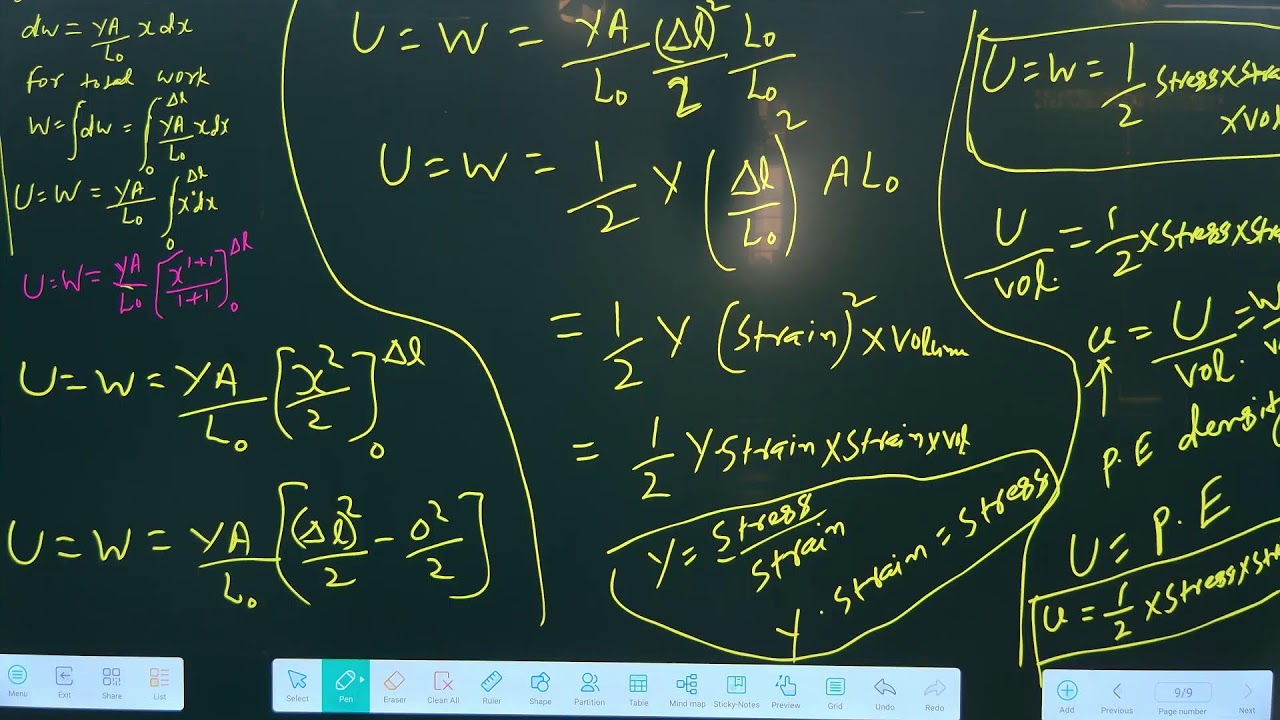 dw = YA/L₀ x dx
for total work
W = ∫dw = ∫₀^Δl YA/L₀ x dx
U = W = YA/L₀ ∫₀^Δl x¹dx
U = W = YA/L₀ [x^(1+1)/(1+1)]₀^Δl
U = W = YA/L₀ [x²/2]₀^Δl
U = W = YA/L₀ [(Δl)²/2 − 0²/2]
U = W = YA/L₀ (Δl)²/2 L₀/L₀
U = W = 1/2 Y (Δl/L₀)² A L₀
= 1/2 Y (Strain)² x Volum
= 1/2 Y Strain x Strain x vol
Y = Stress/Strain
Y . Strain = Stress
U = W = 1/2 Stress x Stra
x Vol
U/vol. = 1/2 x Stress x Stra
u = U/vol. = W/vo
P.E density
U = P.E
u = 1/2 x Stress x Str
Menu
Exit
Share
List
Select
Pen
Eraser
Clean All
Ruler
Shape
Partition
Table
Mind map
Sticky-Notes
Preview
Grid
Undo
Redo
Add
Previous
9/9
Page number
Next